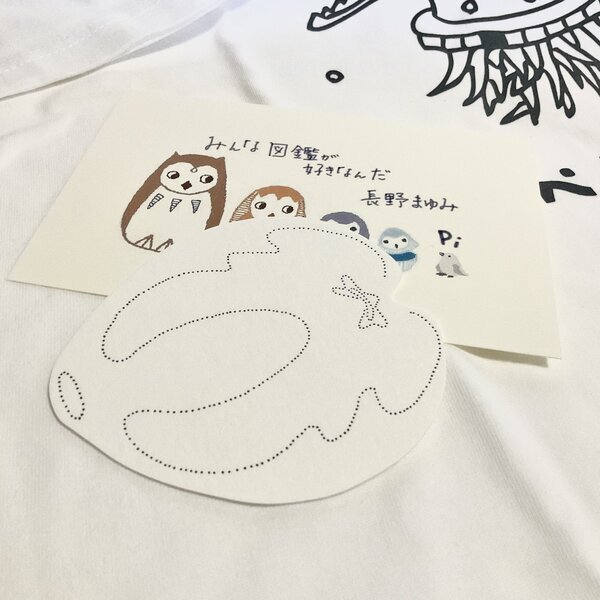 みんな図鑑が
好きなんだ
長野まゆみ
Pi